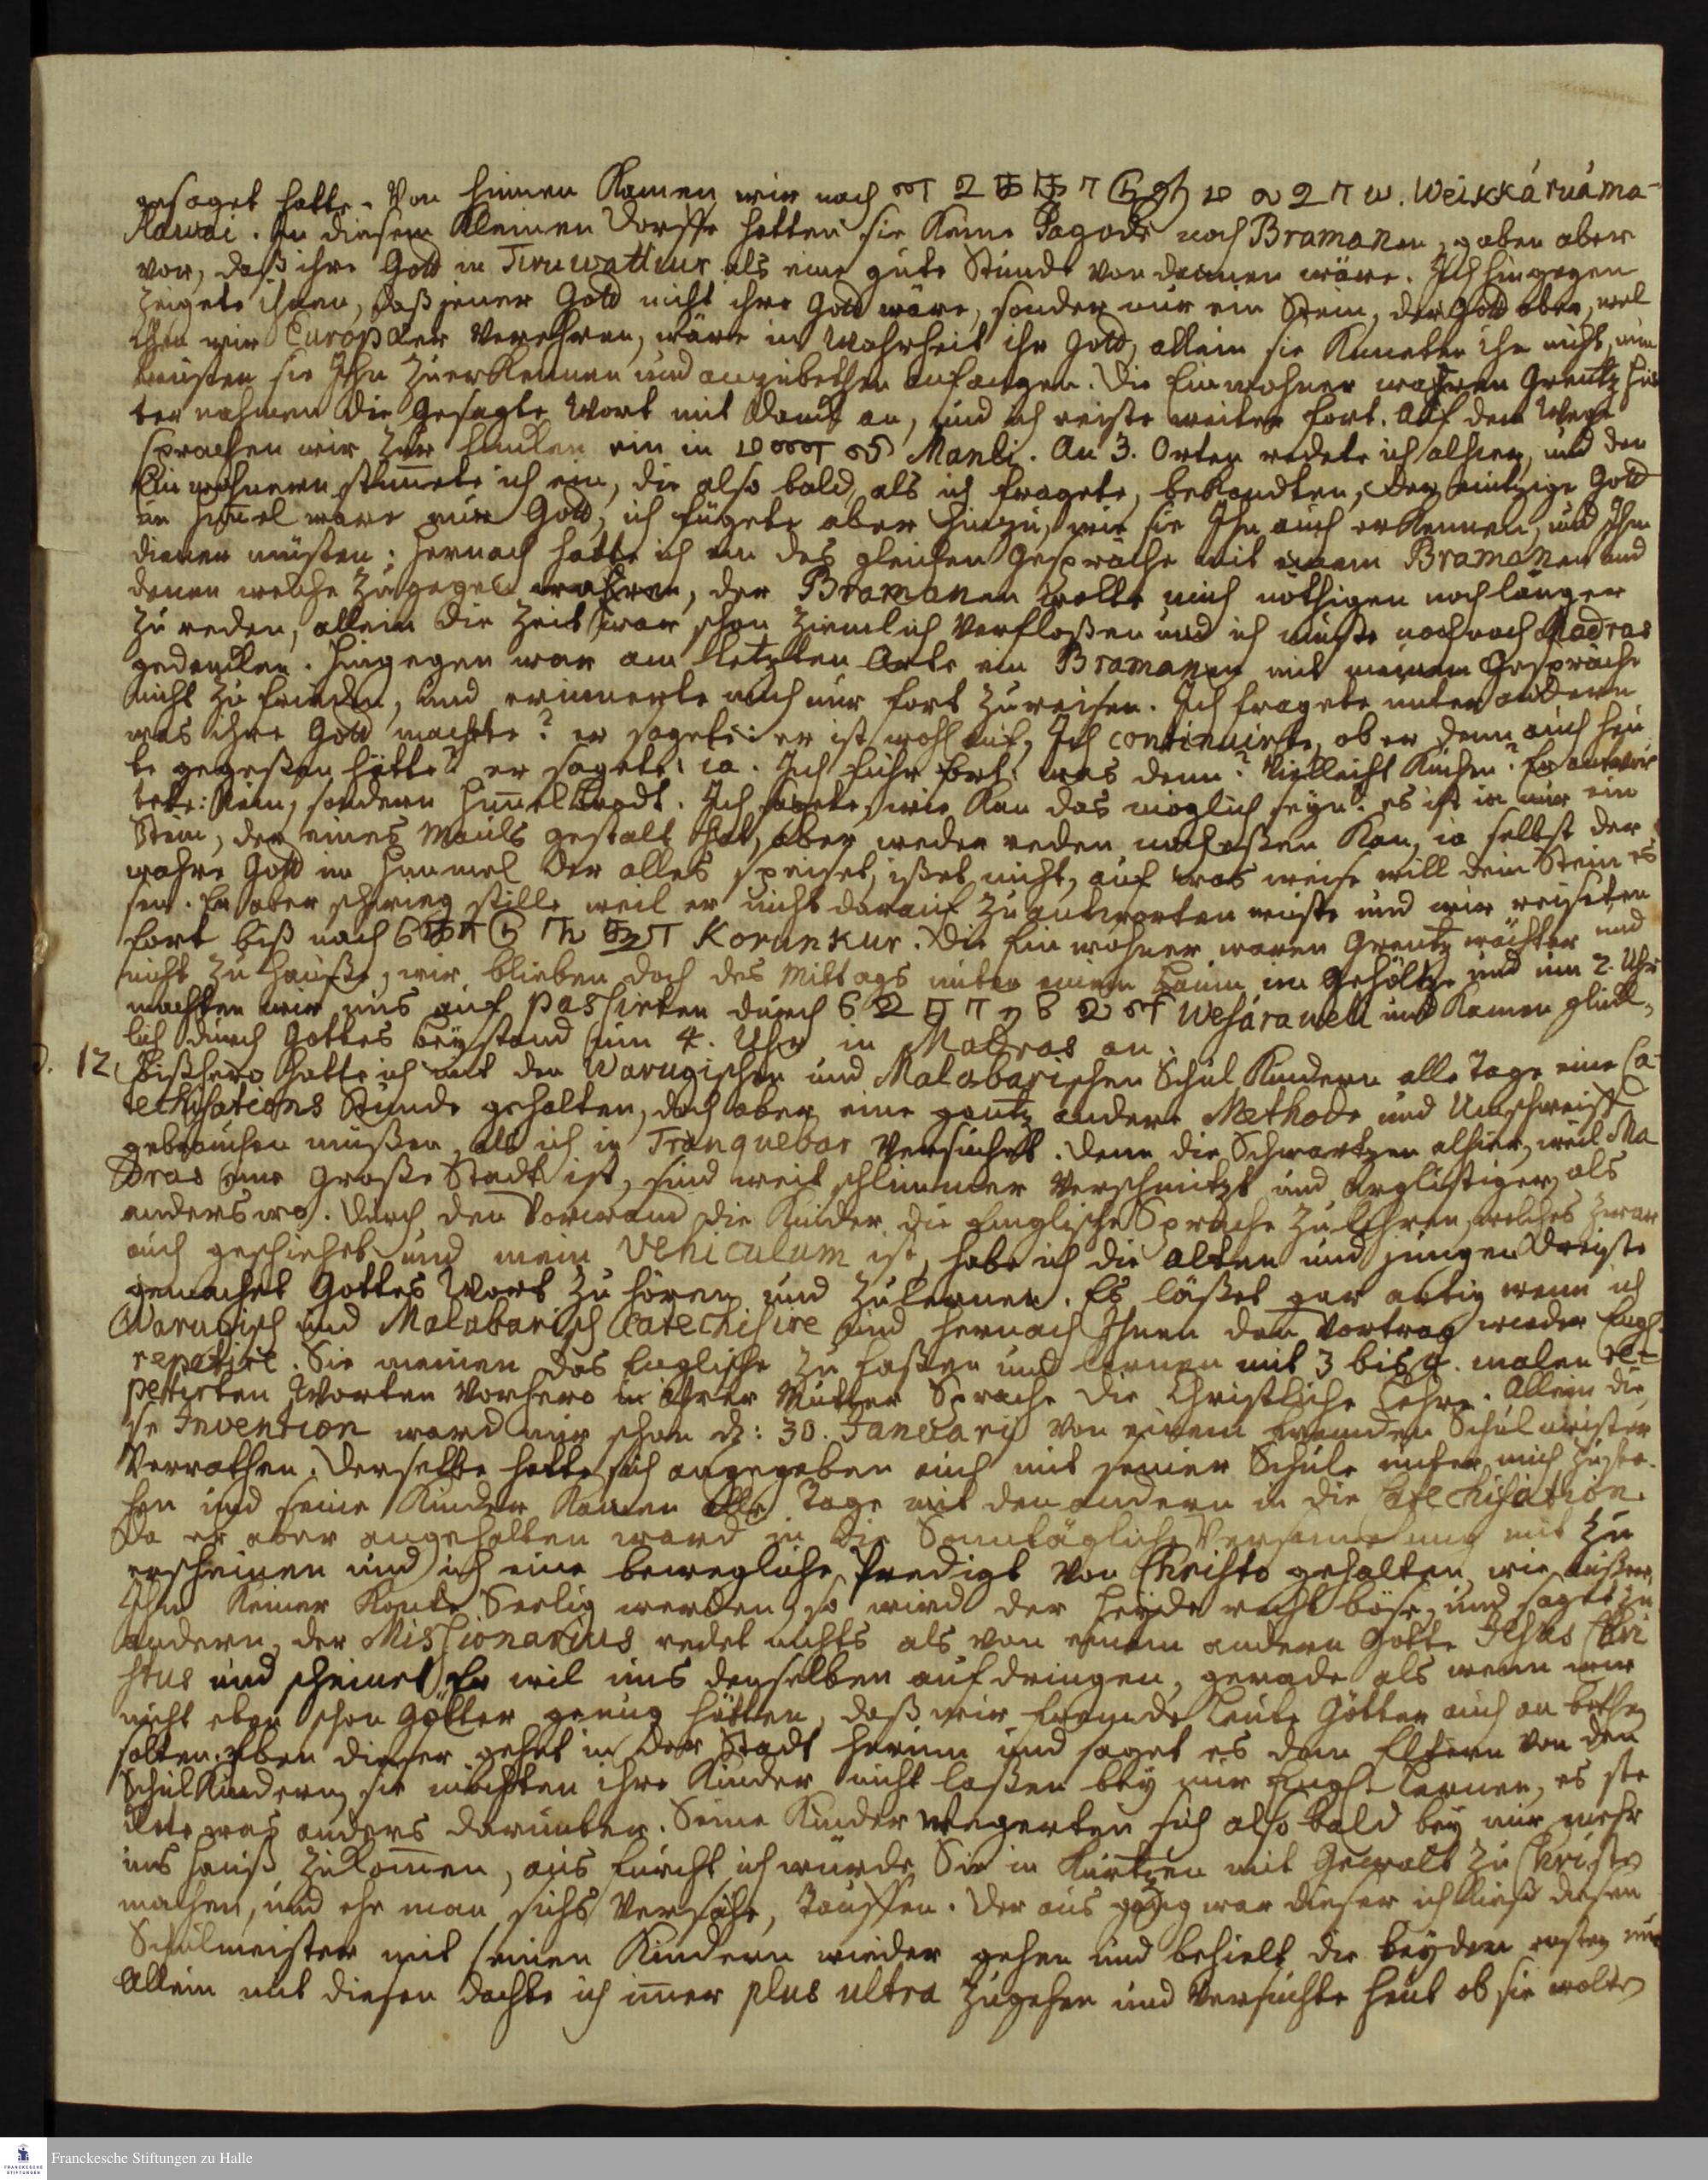 gesaget hatte. Von hinnen kamen wir nach Weikkáruáma-
kawai. In diesem kleinen Dorffe hatten sie keine Pagode noch Bramanen, gaben aber
vor, daß ihre Gott in Tiruwattiur als eine gute Stunde von dannen wäre. Ich hingegen
zeigete ihnen, daß jener Gott nicht ihre Gott wäre, sondern nur ein Stein, der Gott aber, wel
chen wir Europäer verehren, wäre in Wahrheit ihr Gott, allein sie kenneten ihn nicht, nun
müsten sie Ihn zuerkennen und anzubethen anfangen. Die Einwohner wahren Grentz hü
ter nahmen die gesagte Wort mit Danck an, und ich reiste weiter fort. Auf dem Wege
sprachen wir zur lincken ein in Manli. An 3. Orten redete ich alhier, und den
Einwohnern stimete ich ein, die also bald, als ich fragete, bekandten, der eintzige Gott
im Himel wäre nur Gott, ich fügete aber hinzu, wie sie Ihn auch erkennen, und Ihm
dienen müsten; hernach hatte ich ein des gleichen Gespräche mit einem Bramanen und
denen welche zugegen wahren, der Bramanen wolte mich nöthigen noch länger
zu reden, allein die Zeit war schon ziemlich verfloßen und ich muste noch nach Madras
gedencken. Hingegen war am letzten Orte ein Bramanen mit meinem Gespräche
nicht zu frieden, und erinnerte mich nur fort zureisen. Ich fragete unter andern
was ihre Gott machte? er sagete: er ist wohl auf, Ich continuirte, ob er denn auch heu
te gegeßen hätte? er sagete: ia. Ich fuhr fort: was denn? Vielleicht Kuchen? Er antwor
tete: Nein, sondern Himelbrodt. Ich sagete, wie kan das möglich seyn? es ist ia nur ein
Stein, der eines Mauls gestalt hat, aber weder reden noch eßen kan, ia selbst der
wahre Gott im Himmel der alles speiset, ißet nicht, auf was weise will dein Stein es
sen. Er aber schwieg stille weil er nicht darauf zu antworten wuste und wir reiseten
fort biß nach Korunkur. Die Einwohner waren Grentz wächter und
nicht zu Hauße, wir blieben doch des Mittags unter einem Baum im Gehöltze und um 2. Uhr
machten wir uns auf passirten durch Wesáraweli und kamen glück-
lich durch Gottes Beystand um 4. Uhr in Madras an.
d. 12. Bißhero hatte ich mit den Warugischen und Malabarischen Schul Kindern alle Tage eine Ca-
techisations Stunde gehalten, doch aber eine gantz andere Methode und Umschweiff
gebrauchen müßen, als ich in Tranquebar versuchet. Denn die Schwartzen alhier, weil Ma
dras eine große Stadt ist, sind weit schlimmer verschmitzt und arglistiger, als
anderswo. Durch den Vorwand die Kinder die Englische Sprache zu lehren, welches zwar
auch geschiehet und mein Vehiculum ist, habe ich die Alten und jungen dreiste
gemachet Gottes Wort zu hören und zulernen. Es läßet gar artig wenn ich
Warugisch und Malabarisch Catechisire und hernach Ihnen den Vortrag wieder Engl.
repetire. Sie meinen das Englische zu faßen und lernen mit 3 bis 4. malen re-
petirten Worten vorhero in Ihrer Mutter Sprache die Christliche Lehre. Allein die
se Invention ward mir schon d: 30. Januarij von einem fremden Schulmeister
verrathen. Derselbe hatte sich angegeben auch mit seiner Schule unter mich zuste-
hen und seine Kinder kamen alle Tage mit den andern in die Catechisation.
Da er aber angehalten ward in die Sonntägliche Versamlung mit zu
erscheinen und ich eine bewegliche Predigt von Christo gehalten, wie außer
Ihm keiner konte Seelig werden, so wird der Heyde recht böse, und sagt zu
andern, der Missionarius redet nichts als von einem andern Gotte Jesus Chri
stus und scheinet Er wil uns denselben aufdringen, gerade als wenn wir
nicht eben schon Götter genug hätten, daß wir fremde Leute Götter auch an bethen
solten. Eben dieser gehet in der Stadt herum und saget es dem Eltern von den
Schulkindern, sie möchten ihre Kinder nicht laßen bey mir Engl. lernen, es ste
ckete was anders darunter. Seine Kinder wegerten sich also bald bey mir mehr
ins Hauß zukomen, aus Furcht ich würde Sie in kurtzen mit Gewalt zu Christen
machen, und ehe man sichs versähe, Tauffen. Der aus gang war dieser ich ließ diesen
Schulmeister mit seinen Kindern wieder gehen und behielt die beyden ersten nur
Allein mit diesen dachte ich imer plus ultra zugehen und versuchte heut ob sie wolten
Franckesche Stiftungen zu Halle